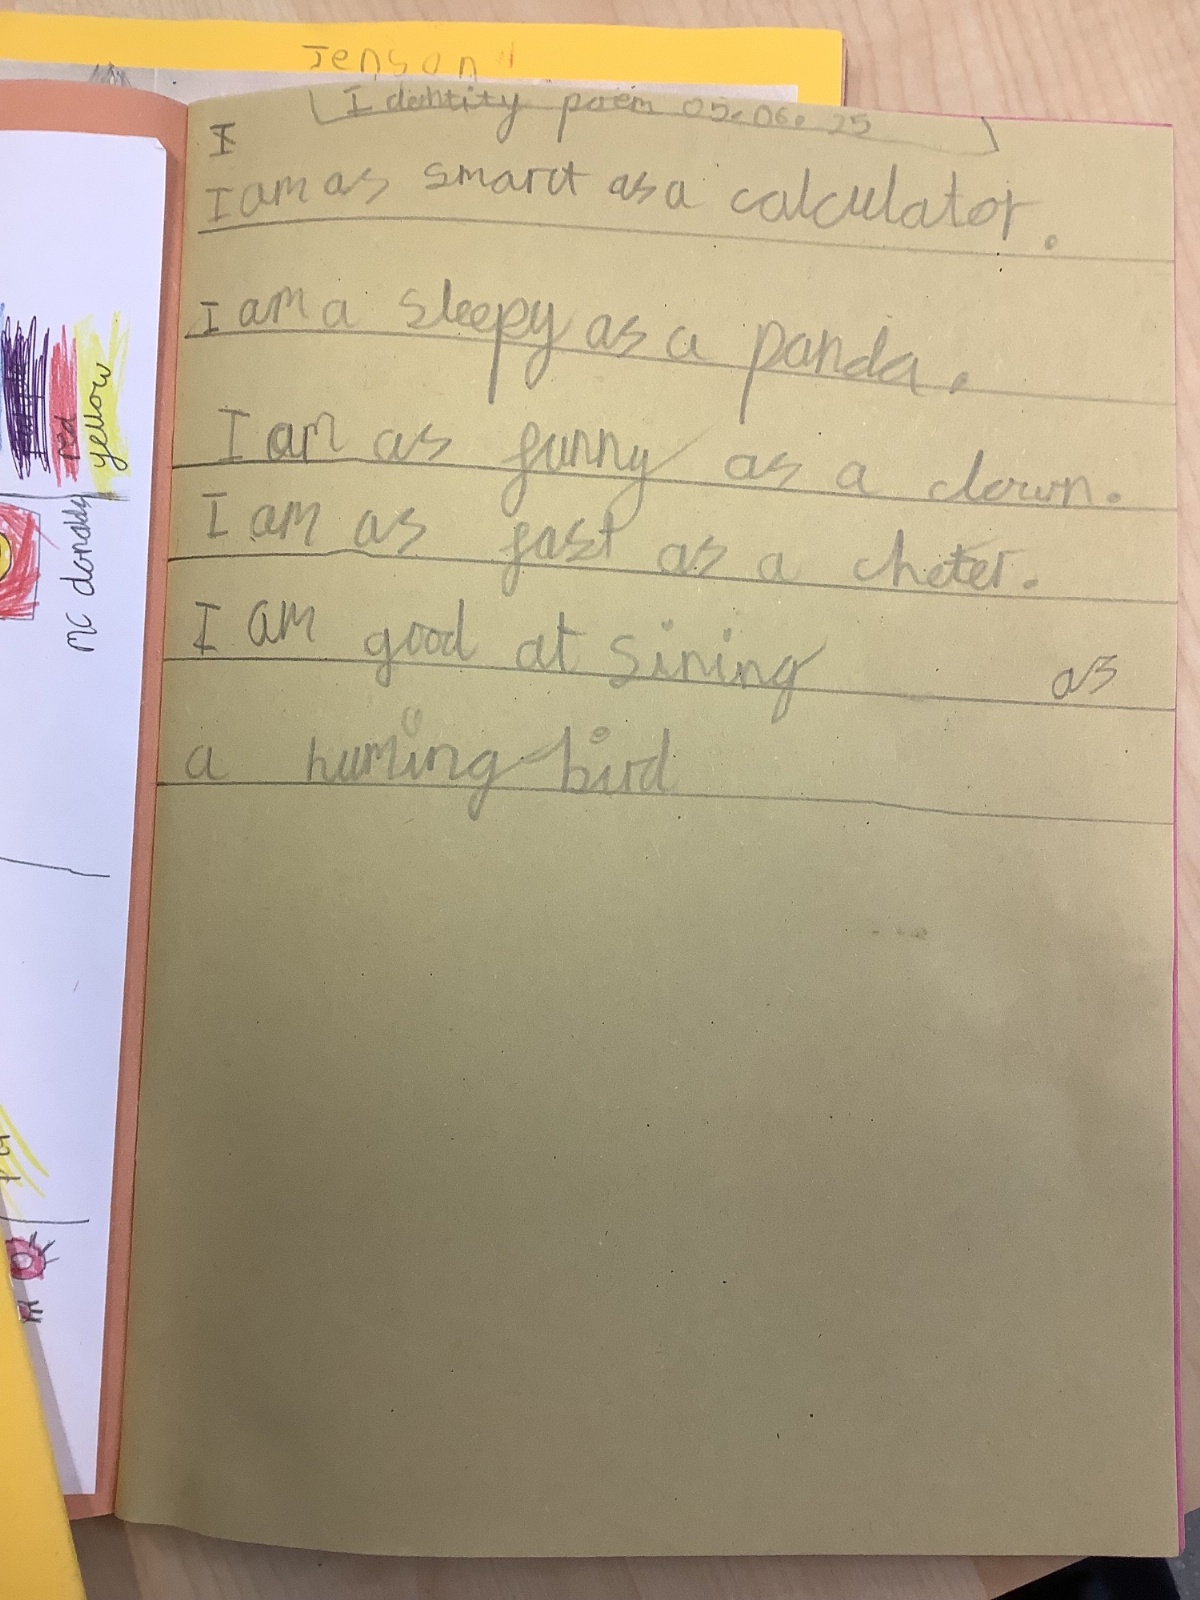 Jenson
Idehtity poem 05.06.25
I
I am as smart as a calculator.
I am a sleepy as a panda.
I am as funny as a clown.
I am as fast as a cheter.
I am good at sining as
a huming bird
red
yellow
mc donalds